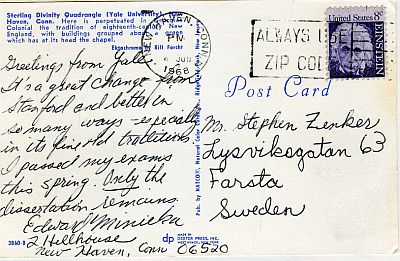 Sterling Divinity Quadrangle (Yale Univer
Haven, Conn. Here is perpetuated in
Colonial the tradition of eighteenth-century New
England, with buildings grouped about a green
which has at its head the chapel.
Ektachrome Bill Forsht
Greetings from Yale.
It's a great change from
Stanford and better in
so many ways - especially
in its fine old traditions.
I passed my exams
this spring. Only the
dissertation remains.
Edward Minicka
2 Hillhouse
New Haven, Conn 06520
3860-B
dp
MADE BY
DEXTER PRESS, INC.
WEST NYACK, NEW YORK
Pub. by METCRAFT, Natural Color
NEW HAVEN, CONN.
PM
JUN
1968
ALWAYS USE
ZIP CODE
United States 8c
EINSTEIN
Post Card
Mr. Stephen Zenker
Lysviksgatan 63
Farsta
Sweden